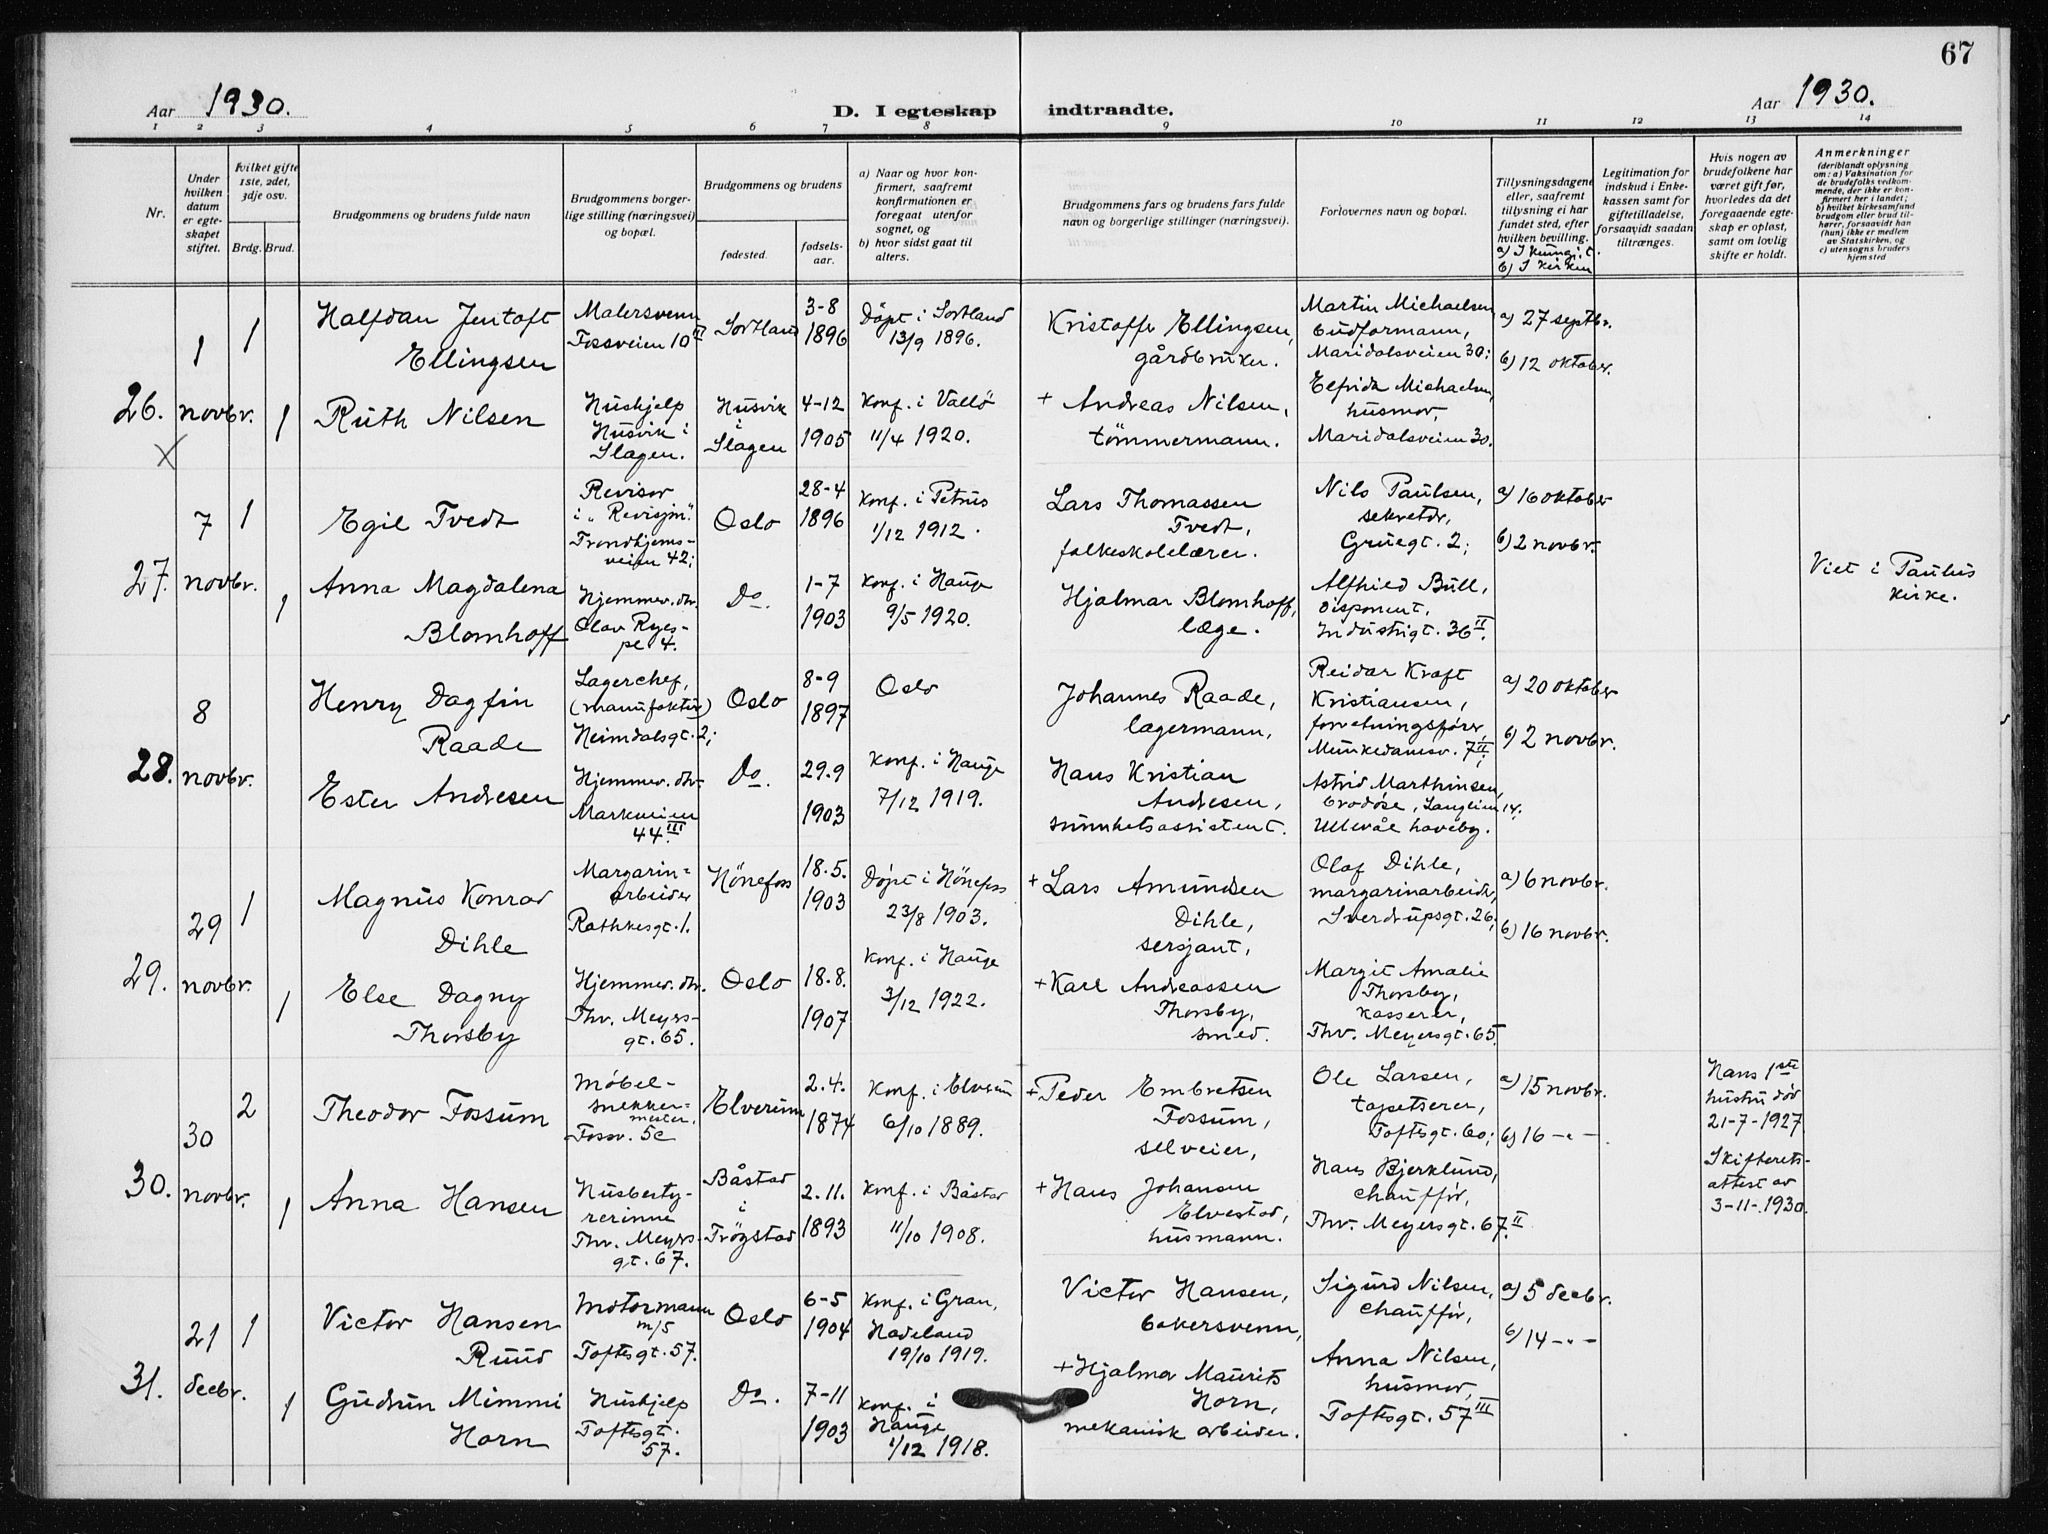 67
Aar 1930.
D. I egteskap indtraadte.
Aar 1930.
1 2 3 4 5 6 7 8 9 10 11 12 13 14
Nr.
Under
hvilken
datum
er egte-
skapet
stiftet.
Hvilket gifte
1ste, 2det,
3dje osv.
Brdg. Brud.
Brudgommens og brudens fulde navn
Brudgommens borger-
lige stilling (næringsvei)
og bopæl.
Brudgommens og brudens
fødested.
fødsels-
aar.
a) Naar og hvor kon-
firmert, saafremt
konfirmationen er
foregaat utenfor
sognet, og
b) hvor sidst gaat til
alters.
Brudgommens fars og brudens fars fulde
navn og borgerlige stillinger (næringsvei).
Forlovernes navn og bopæl.
Tillysningsdagene
eller, saafremt
tillysning ei har
fundet sted, efter
hvilken bevilling.
b) I kirken
Legitimation for
indskud i Enke-
kassen samt for
giftetilladelse,
forsaavidt saadan
tiltrænges.
Hvis nogen av
brudefolkene har
været gift før,
hvorledes da det
foregaaende egte-
skap er opløst,
samt om lovlig
skifte er holdt.
Anmerkninger
(deriblandt oplysning
om: a) Vaksination for
de brudefolks vedkom-
mende, der ikke er kon-
firmert her i landet;
b) hvilket kirkesamfund
brudgom eller brud til-
hører, forsaavidt han
(hun) ikke er medlem
av Statskirken, og
c) utensogns bruders
hjemsted
26.
X
1
novbr.
1
Halfdan Jentoft
Ellingsen
Malersvenn
Fossveien 10 III
Sortland
3-8
1896
Døpt i Sortland
13/9 1896.
Kristoffr Ellingsen,
gårdbruker.
Martin Michaelsen,
budformann,
Maridalsveien 30;
a) 27 septbr.
b) 12 oktober.
1
Ruth Nilsen
Hushjelp
Husvik i
Slagen.
Husvik
i
Slagen
4-12
1905
Konf. i Vallö
11/4 1920.
+ Andreas Nilsen,
tömmermann.
Elfrida Michaelsen,
husmor,
Maridalsveien 30.
27.
7
novbr.
1
Egil Tvedt
Revisor
i "Revisjon".
Trondhjems-
veien 42;
Oslo
28-4
1896
Konf. i Petrus
1/12 1912.
Lars Thomassen
Tvedt,
folkeskolelærer.
Nils Paulsen,
sekretær,
Gruegt. 2;
a) 16 oktober
b) 2 novbr.
1
Anna Magdalena
Blomhoff
Hjemmev. dtr.
Olav Ryes-
pl 4.
Do.
1-7
1903
Konf. i Hauge
9/5 1920.
Hjalmar Blomhoff,
læge.
Alfhied Bull,
disponent,
Industrigt. 36 II.
Viet i Paulus
kirke.
28.
8
novbr.
Henry Dagfin
Raade
Lagerchef,
(manufaktur)
Heimdalsgt. 2;
Oslo
8-9
1897
Oslo
Johannes Raade,
lagermann,
Reidar Kraft
Kristiansen,
forretningsfører,
Munkedamsv. 7 II;
a) 20 oktober
b) 2 novbr.
Ester Andresen
Hjemmev. dtr.
Markveien
44 III
Do.
29.9
1903
Konf. i Hauge
7/12 1919.
Hans Kristian
Andresen,
sunnhetsassistent.
Astrid Marthinsen,
brodöse, Langeien 14.
Ullevål haveby.
29.
29
novbr.
1
Magnus Konrad
Dihle
Margarin=
arbeider
Rathkesgt. 1.
Hönefoss
18.5.
1903
Döpt i Hönefoss
23/8 1903.
+ Lars Amundsen
Dihle,
sersjant,
Olaf Dihle,
margarinarbeider,
Sverdrupsgt. 26;
a) 6 novbr.
b) 16 novbr.
1
Else Dagny
Thorsby
Hjemmev. dtr.
Thv. Meyrs-
gt. 65.
Oslo
18.8.
1907
Konf. i Hauge
3/12 1922.
+ Karl Andreassen
Thorsby,
smed.
Margit Amalie
Thorsby,
kasserer,
Thv. Meyersgt. 65.
30.
30
novbr.
2
Theodor Fossum
Möbel-
snekker-
mester.
Fossv. 5c
Elverum
2.4.
1874
Konf. i Elverum
6/10 1889.
+ Peder Embretsen
Fossum,
selveier,
Ole Larsen,
tapetserer,
Toftesgt. 60;
a) 15 novbr.
b) 16 -"-
Hans 1ste
hustru död
21-7-1927.
Skifterets-
attest av
3-11-1930.
1
Anna Hansen
Husbesty-
rerinne
Thv. Meyrs-
gt. 67.
Båstad
i
Trögstad
2.11.
1893
Konf. i Båstad
11/10 1908.
+ Hans Johansen
Elvestad,
husmann.
Hans Bjerklund,
chaufför,
Thv. Meyersgt. 67 II.
31.
21
decbr.
1
Victor Hansen
Ruud
Motormann
m/s
Toftesgt. 57.
Oslo
6-5
1904
Konf. i Gran,
Hadeland
19/10 1919.
Victor Hansen,
bakersvenn,
Sigurd Nilsen,
chaufför,
a) 5 decbr.
b) 14 -"-
1
Gudrun Mimmi
Horn
Hushjelp
Toftesgt.
57.
Do.
7-11
1903
Konf. i
Hauge
1/12 1918.
+ Hjalmar Maurits
Horn,
mekanisk arbeider.
Anna Nilsen,
husmor,
Toftesgt. 57 III